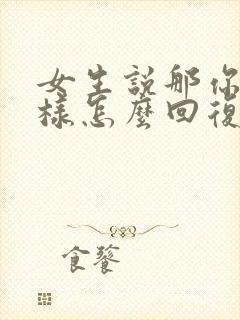 女生說那你
樣怎麼回復
食饕